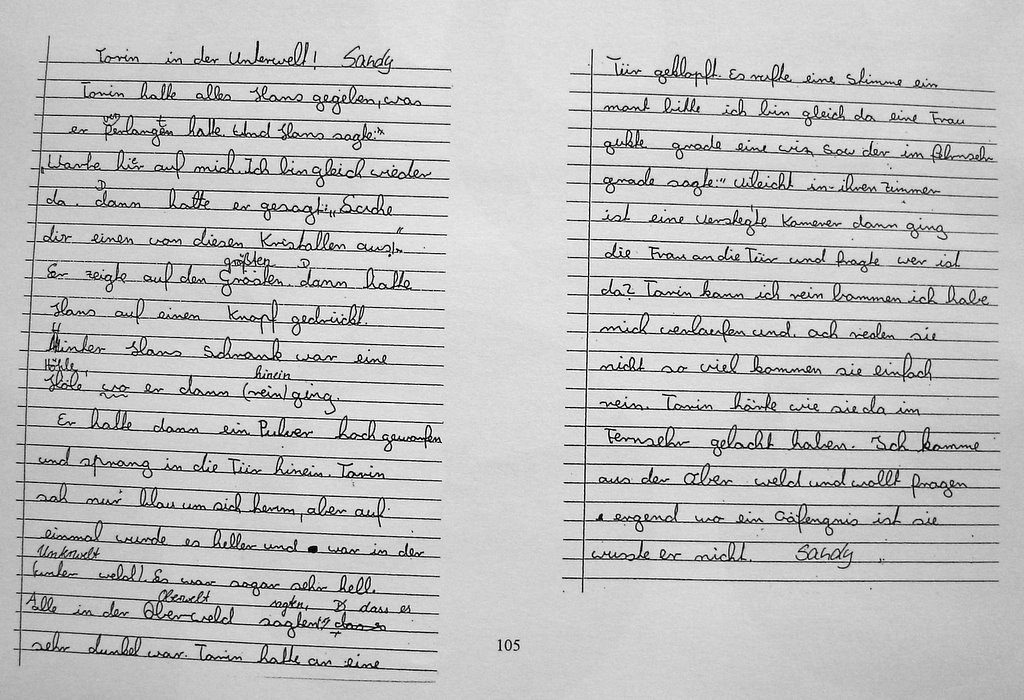 Torin in der Unterwelt! Sandy
Torin hatte alles Hans gegeben, was
er verlangen t hatte. Und Hans sagte:"
„Warte hir auf mich. Ich bin gleich wieder
da. D dann hatte er gesagt: „Suche
dir einen von diesen Kristallen aus!"
größten D
Er zeigte auf den Grösten. dann hatte
Hans auf einen Knopf gedrückt.
H
Hinter Hans Schrank war eine
Höhle, hinein
Höle wo er dann (rein) ging.
Er hatte dann ein Pulver hoch geworfen
und sprang in die Tür hinein. Torin
sah nur blau um sich herum, aber auf
einmal wurde es heller und war in der
Unterwelt
(unter weld). Es war sogar sehr hell.
Oberwelt sagten, dass es
Alle in der Oberweld sagten das es
sehr dunkel war. Torin hatte an eine
Tür geklopft. Es rufte eine Stimme ein
mont bitte ich bin gleich da eine Frau
gukte grade eine wiz sow der im
grade sagte:" vileicht in ihren Zimmer
ist eine verstegte Kamerer dann ging
die Frau an die Tür und fragte wer ist
da? Torin kann ich rein kommen ich habe
mich verlaufen und. ach reden sie
nicht so viel kommen sie einfach
rein. Torin hörte wie sie da im
Fernsehr gelacht haben. Ich komme
aus der Ober weld und wollt fragen
ergend wo ein Gäfengnis ist sie
wusste er nicht. Sandy
105